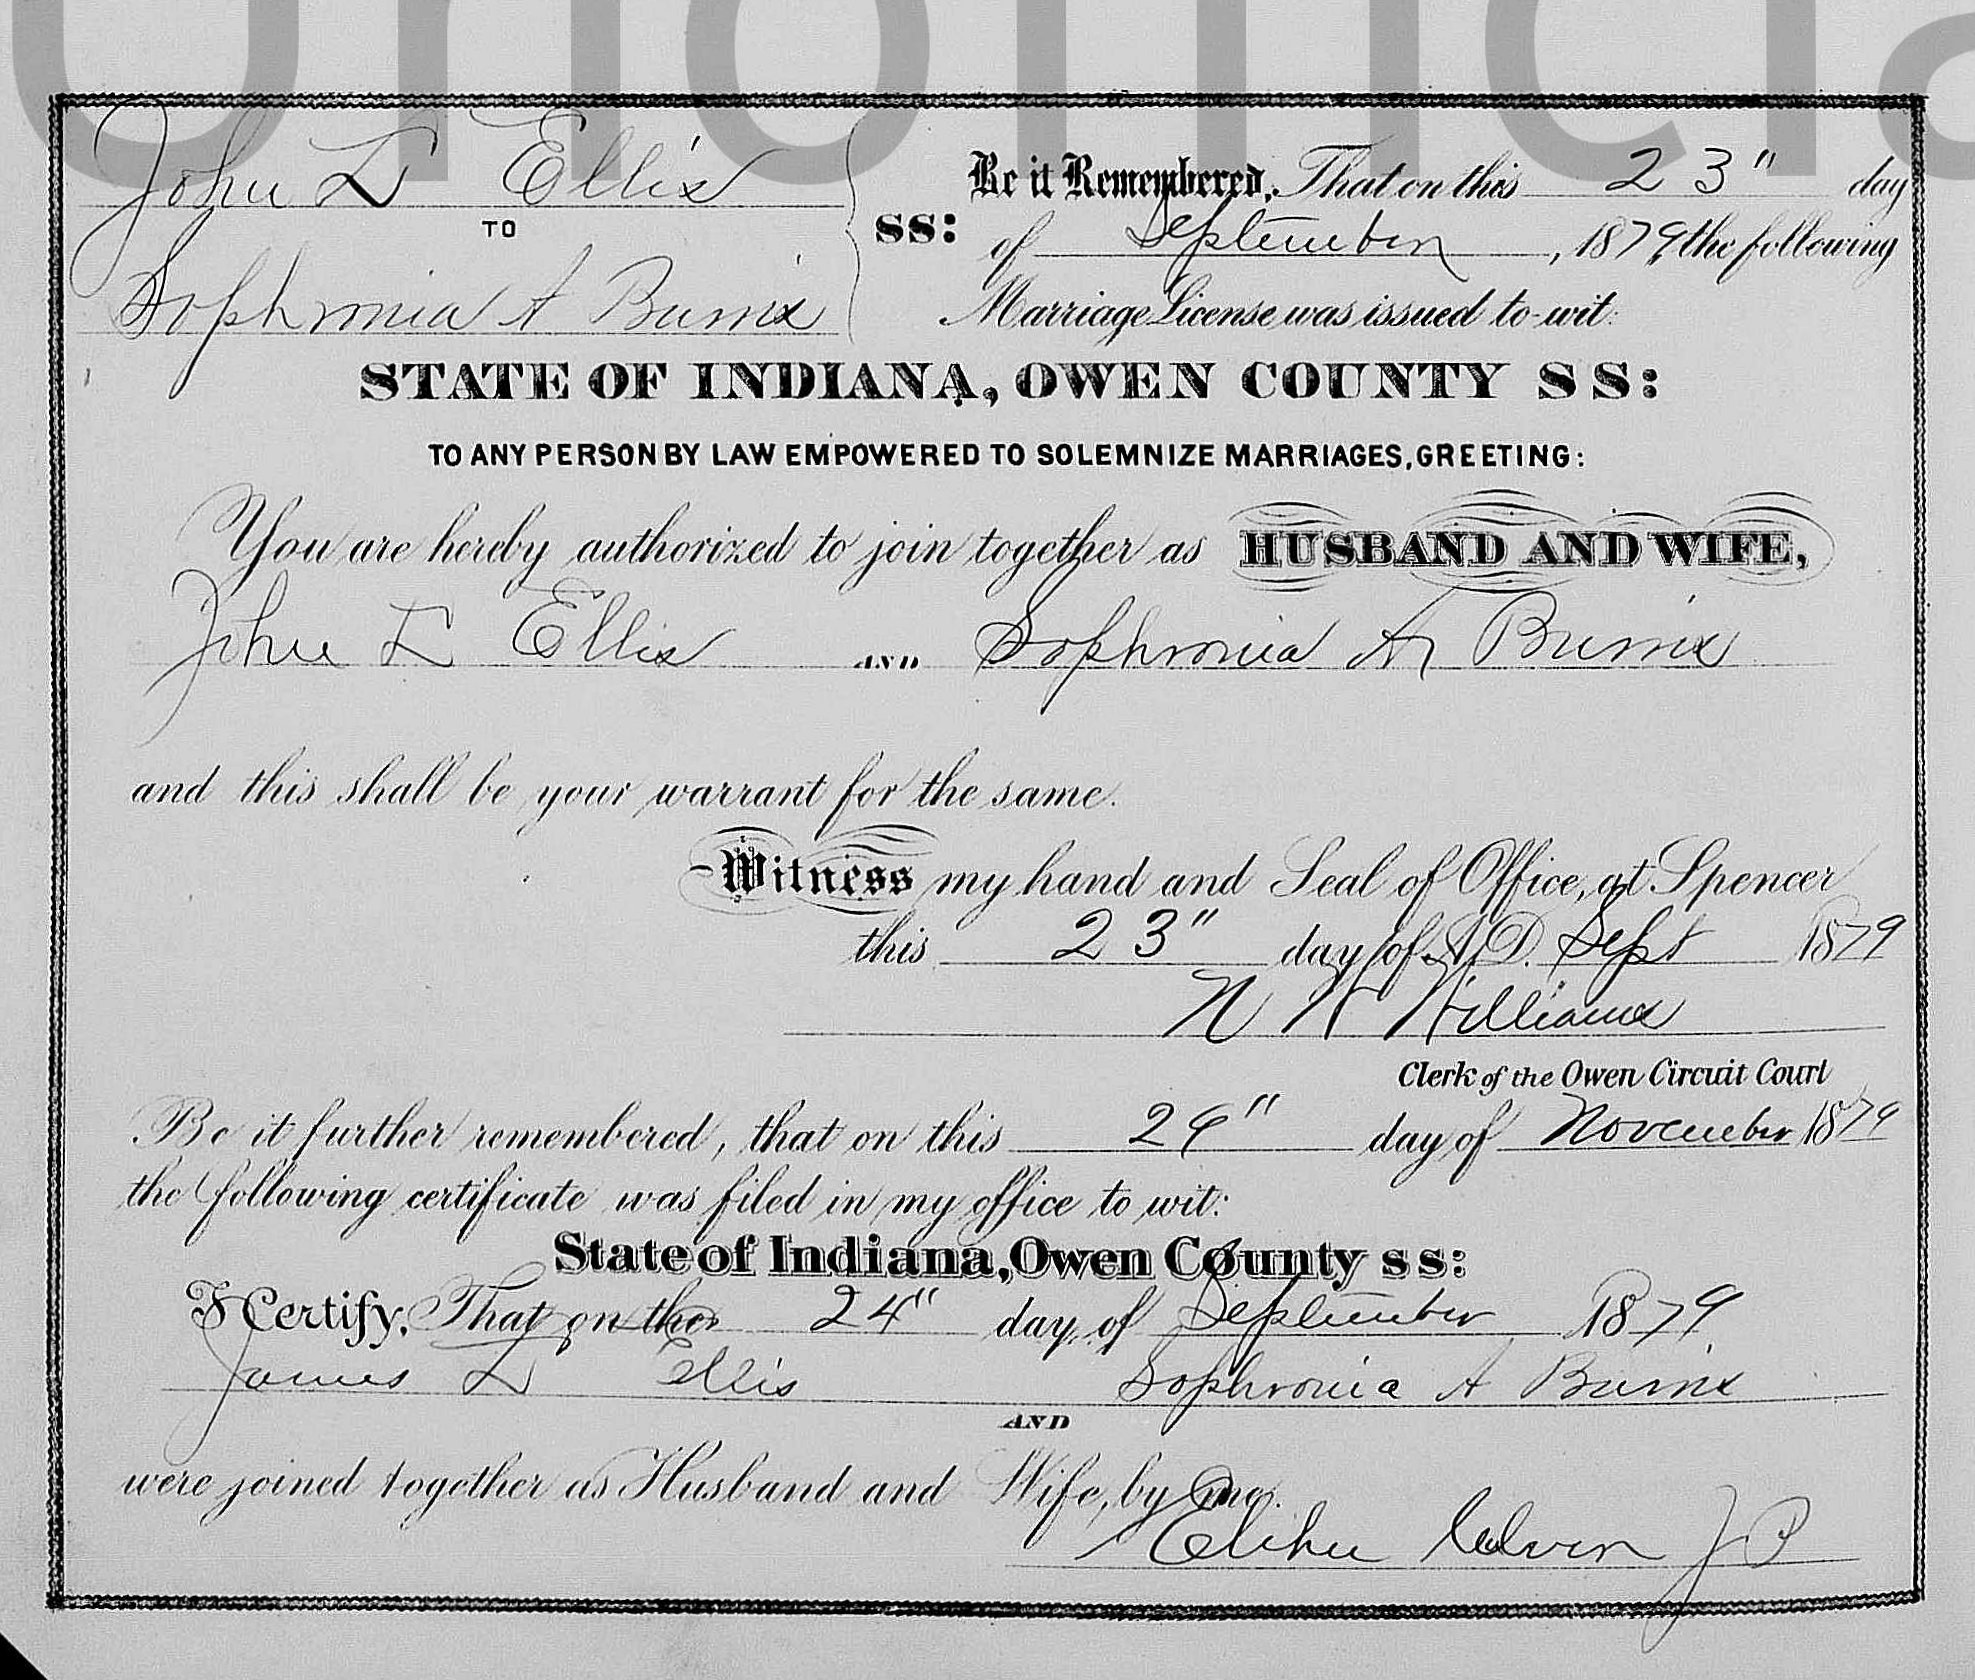 Unofficia
John L Ellis
TO
Sophronia A Burris
ss:
Be it Remembered, That on this 23" day
of September, 1879, the following
Marriage License was issued to-wit:
STATE OF INDIANA, OWEN COUNTY SS:
TO ANY PERSON BY LAW EMPOWERED TO SOLEMNIZE MARRIAGES, GREETING:
You are hereby authorized to join together as HUSBAND AND WIFE,
John L Ellis AND Sophronia A Burris
and this shall be your warrant for the same.
Witness my hand and Seal of Office, at Spencer
this 23" day of A.D. Sept 1879
N W Williams
Clerk of the Owen Circuit Court
Be it further remembered, that on this day of November 1879
the following certificate was filed in my office to wit:
State of Indiana, Owen County ss:
I Certify, That on the 24" day of September 1879
James L Ellis AND Sophronia A Burris
were joined together as Husband and Wife, by me.
Elihu JP